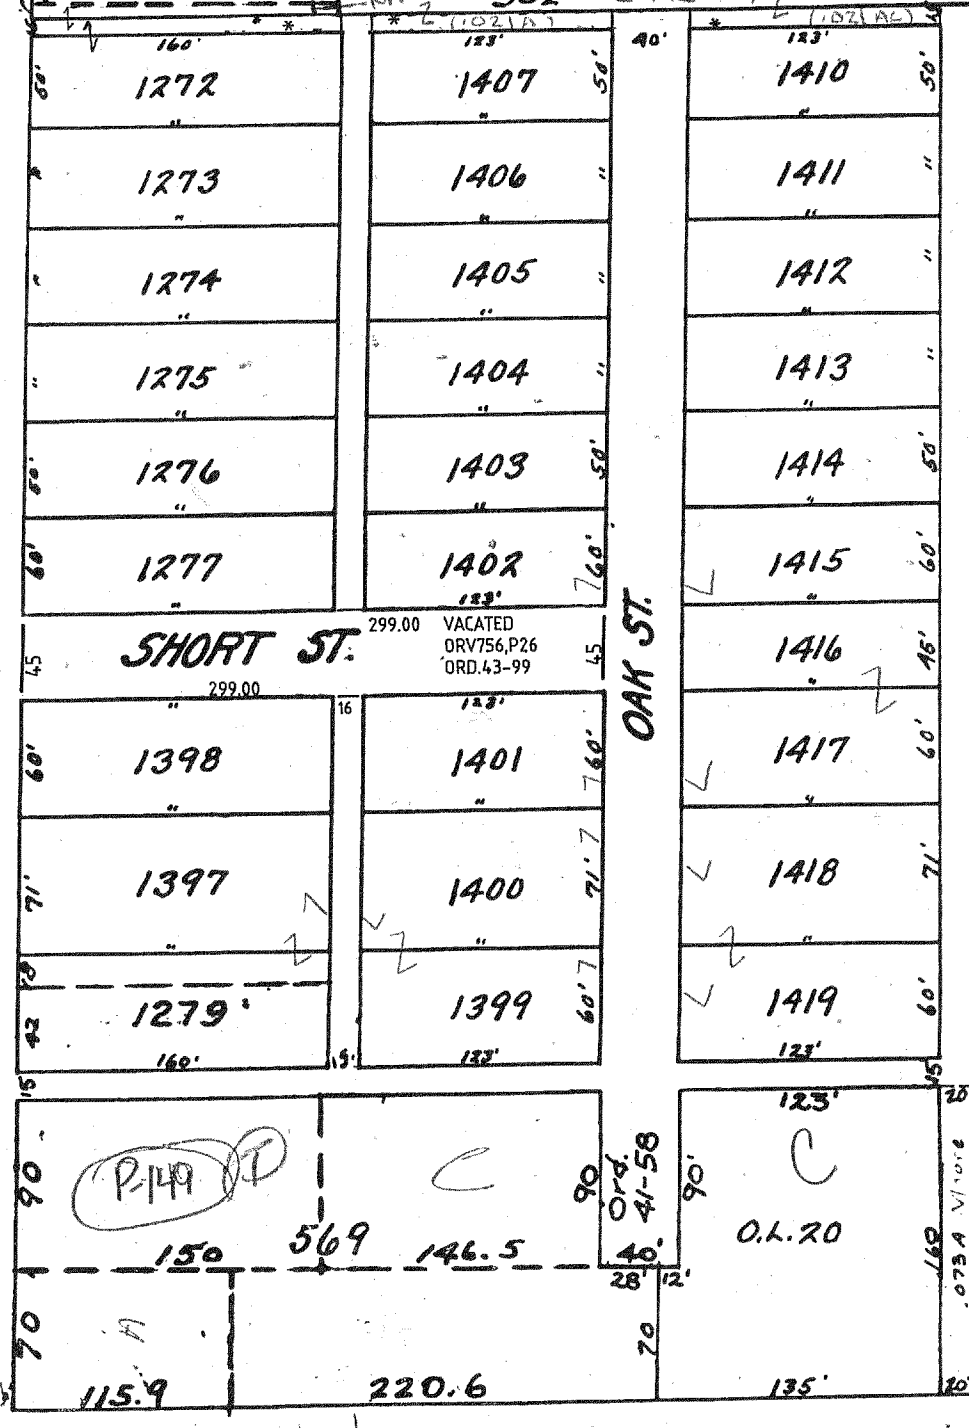 (.021A) (.021AC)
160' 123' 40' 123'
50' 1272 1407 50' 1410 50'
" " "
" 1273 1406 " 1411 "
" " "
" 1274 1405 " 1412 "
" " "
" 1275 1404 " 1413 "
" " "
50' 1276 1403 50' 1414 50'
" " "
60' 1277 1402 60' 1415 60'
" 123'
45 SHORT ST. 299.00 VACATED
ORV756,P26
ORD.43-99
45 OAK ST. 1416 45'
"
299.00
" 16 123'
60' 1398 1401 60' 1417 60'
" " "
71' 1397 1400 71' 1418 71'
" " "
18
42 1279 1399 60' 1419 60'
160' 15' 123' 123'
15 15'
123' 20'
90 P-149 T C 90 Ord.
41-58
90' C
O.L.20
160
150 569 146.5 40'
28' 12'
70 70
115.9 220.6 135' 20'